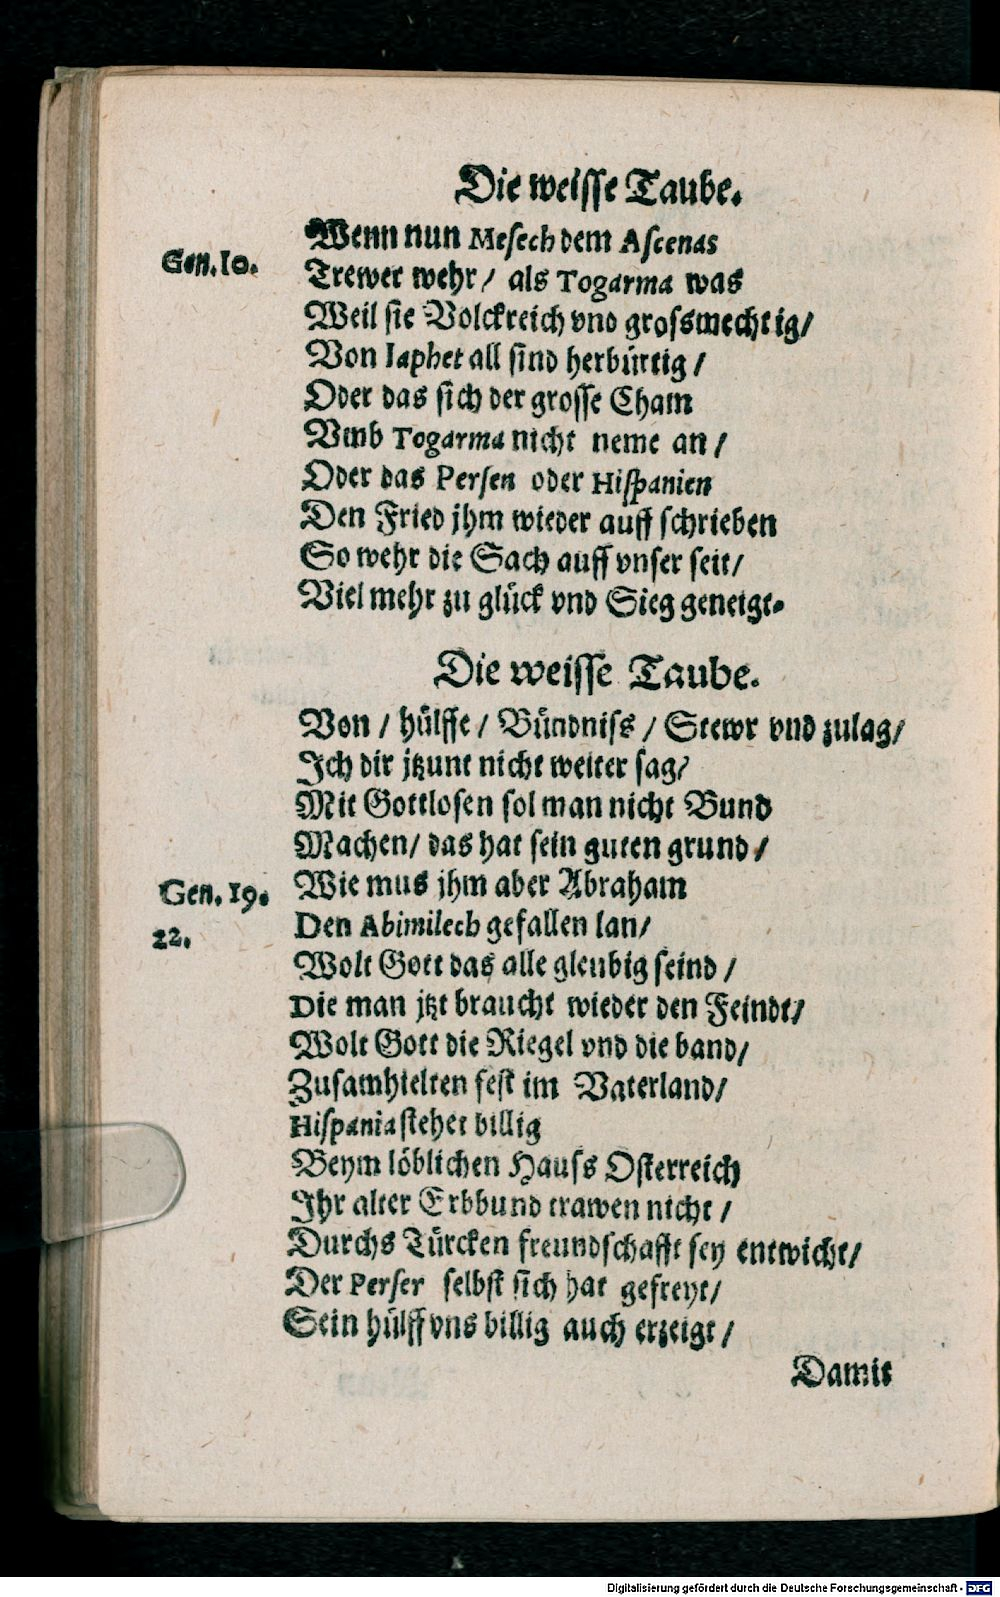 Die weisse Taube.
Wenn nun Mesech dem Ascenas
Gen. 10.
Trewer wehr / als Togarma was
Weil sie Volckreich vnd grossmechtig /
Von Iaphet all sind herbürtig /
Oder das sich der grosse Cham
Vmb Togarma nicht neme an /
Oder das Persen oder Hispanien
Den Fried jhm wieder auff schrieben
So wehr die Sach auff vnser seit /
Viel mehr zu glück vnd Sieg geneigt.
Die weisse Taube.
Von / hülffe / Bündniss / Stewr vnd zulag /
Ich dir jtzunt nicht weiter sag /
Mit Gottlosen sol man nicht Bund
Machen / das hat sein guten grund /
Gen. 19.
Wie mus jhm aber Abraham
22.
Den Abimilech gefallen lan /
Wolt Gott das alle gleubig seind /
Die man jtzt braucht wieder den Feindt /
Wolt Gott die Riegel vnd die band /
Zusamhielten fest im Vaterland /
Hispania stehet billig
Beym löblichen Hauss Osterreich
Ihr alter Erbbund trawen nicht /
Durchs Türcken freundschafft sey entwicht /
Der Perser selbst sich hat gefreyt /
Sein hülff vns billig auch erzeigt /
Damit
Digitalisierung gefördert durch die Deutsche Forschungsgemeinschaft - DFG